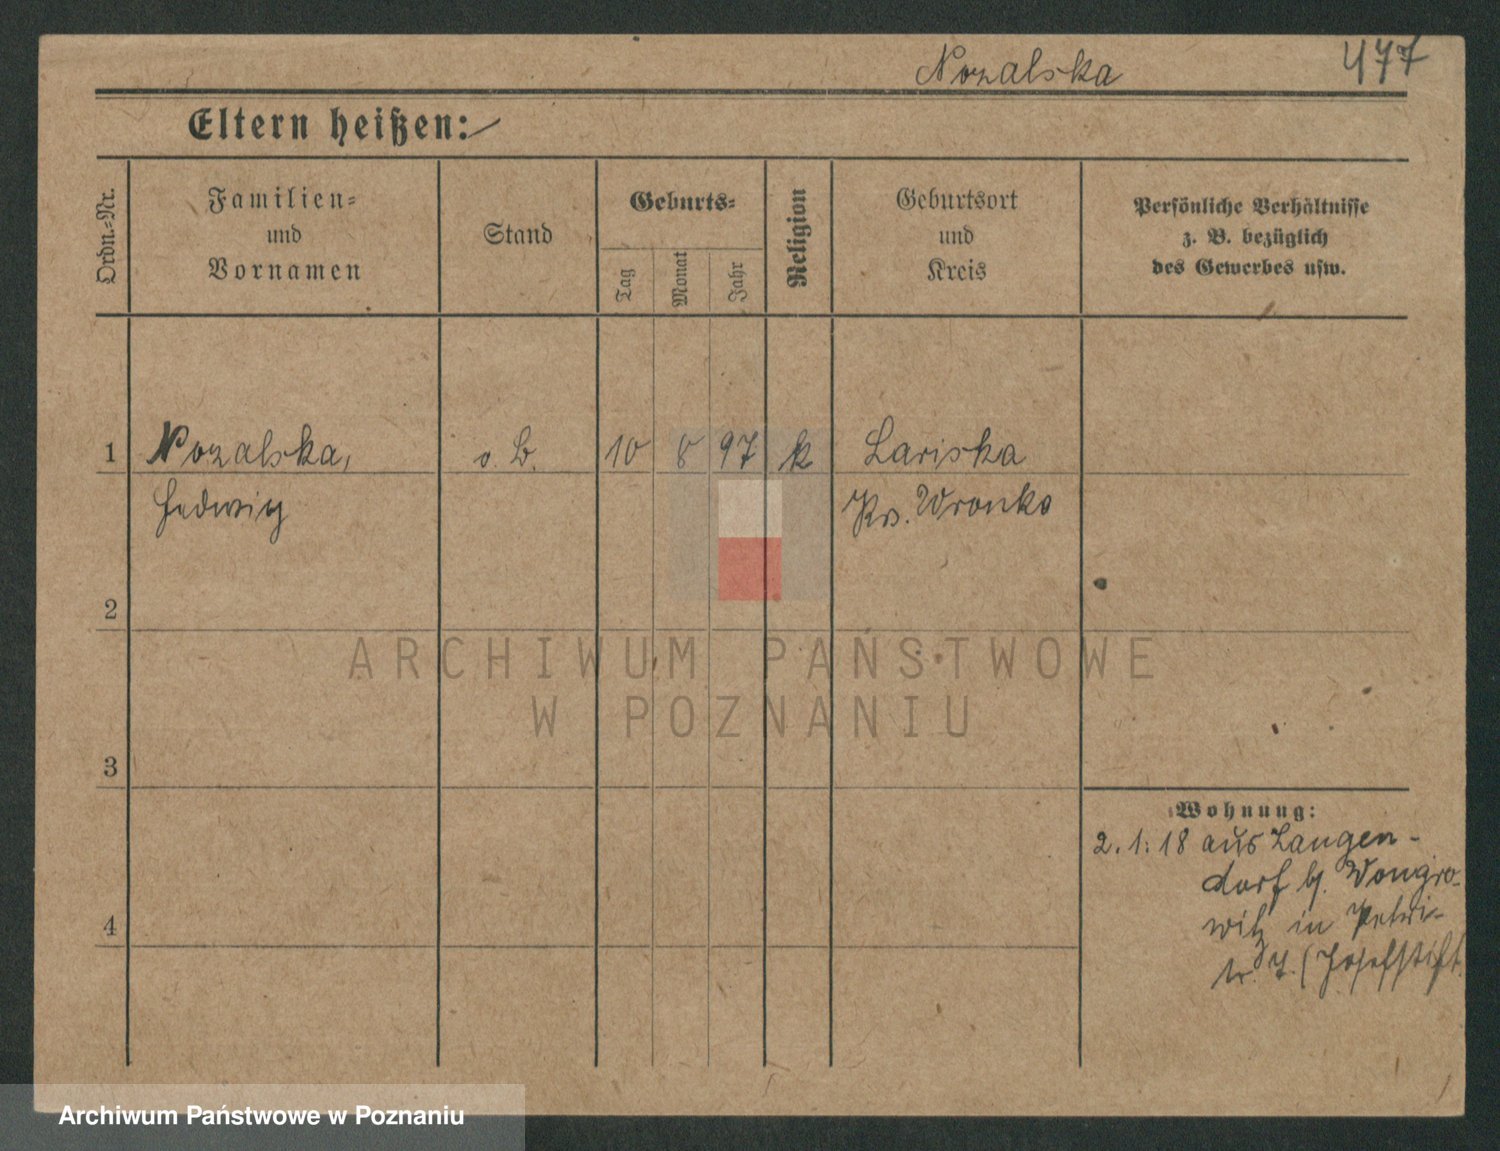 Nozalska 477
Eltern heißen:
Ordn.-Nr.
Familien-
und
Vornamen
Stand
Geburts-
Tag
Monat
Jahr
Religion
Geburtsort
und
Kreis
Persönliche Verhältnisse
z. B. bezüglich
des Gewerbes usw.
1 Nozalska, o. B. 10 8 97 k Lariska
Hedwig Krs. Wronke
2
ARCHIWUM PAŃSTWOWE
W POZNANIU
3
Wohnung:
2. 1. 18 aus Langen-
dorf b. Wongro-
4
witz in Petri-
str. (Josefstift
Archiwum Państwowe w Poznaniu